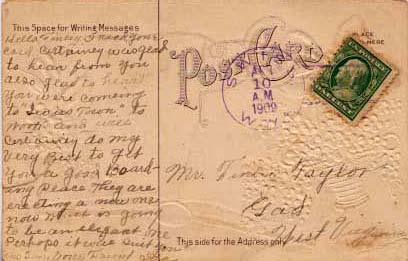 This Space for Writing Messages
Hello Tinley I rec'd your
card certainey was glad
to hear from you
also glad to hear
you were comeing
to Town" to
work and will
certainey do my
Very Best to get
You a good Board-
ing Place They are
erecting a new one
now which is going
to be an elegant one
Perhaps it will suit you
POST CARD
PLACE
HERE
10
A M
1909
Mr. Taylor
Gad,
West Virginia
This side for the Address only